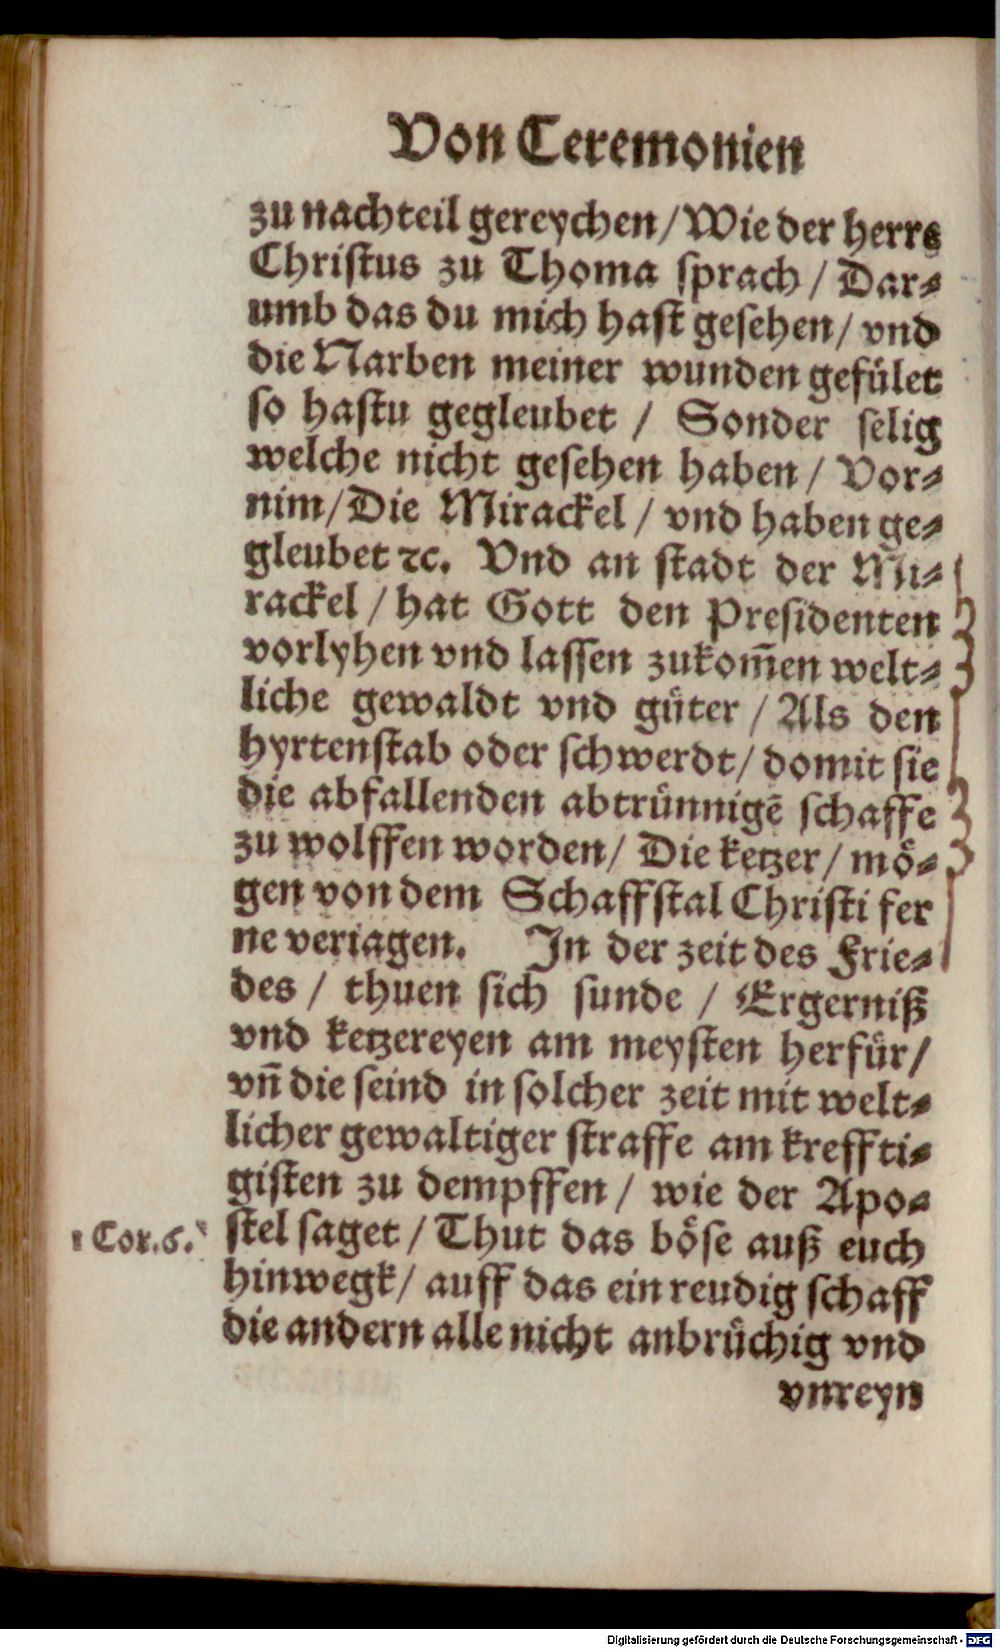 Von Ceremonien
zu nachteil gereychen / Wie der herre
Christus zu Thoma sprach / Dar⸗
umb das du mich hast gesehen / vnd
die Narben meiner wunden gefület
so hastu gegleubet / Sonder selig
welche nicht gesehen haben / Vor⸗
nim / Die Mirackel / vnd haben ge⸗
gleubet ꝛc. Vnd an stadt der Mi⸗
rackel / hat Gott den Presidenten
vorlyhen vnd lassen zukom̃en welt⸗
liche gewaldt vnd güter / Als den
hyrtenstab oder schwerdt / domit sie
die abfallenden abtrünnigē schaffe
zu wolffen worden / Die ketzer / mö⸗
gen von dem Schaffstal Christi fer
ne veriagen. In der zeit des Frie⸗
des / thuen sich sunde / Ergerniß
vnd ketzereyen am meysten herfür /
vn̄ die seind in solcher zeit mit welt⸗
licher gewaltiger straffe am kreffti⸗
gisten zu dempffen / wie der Apo⸗
1 Cor. 6. stel saget / Thut das böse auß euch
hinwegk / auff das ein reudig schaff
die andern alle nicht anbrüchig vnd
vnreyn
Digitalisierung gefördert durch die Deutsche Forschungsgemeinschaft - DFG